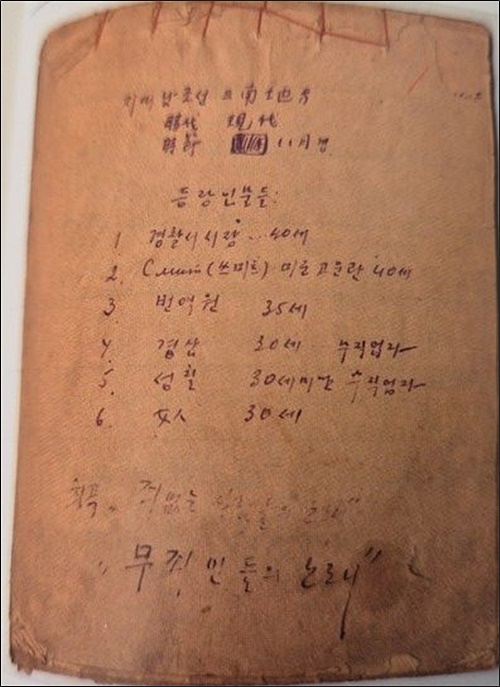 남조선 南地方
時代 現代
時節 11月경
등랑인물들:
1 경찰서서장 .. 40세
2. Смит(쓰미트) 미군고문관 40세
3. 번역원 35세
4. 경삼 30세 무직업자
5. 성철 30세미만 무직업자
6. 女人 30세
희곡 „죄없는 논리"
"무죄인들의 논리"